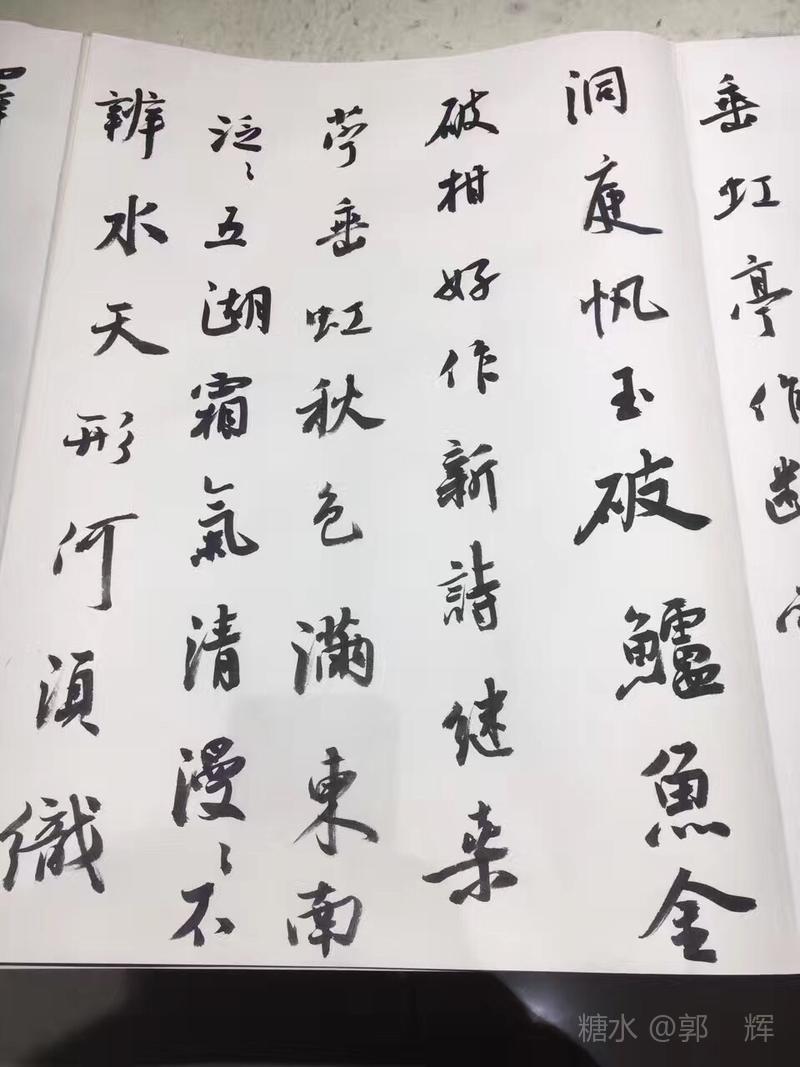 垂虹亭作
洞庭帆玉破鱸魚金
破柑好作新詩继桒
苧垂虹秋色滿東南
泛〻五湖霜氣清漫〻不
辨水天形何須織
糖水 @郭 辉